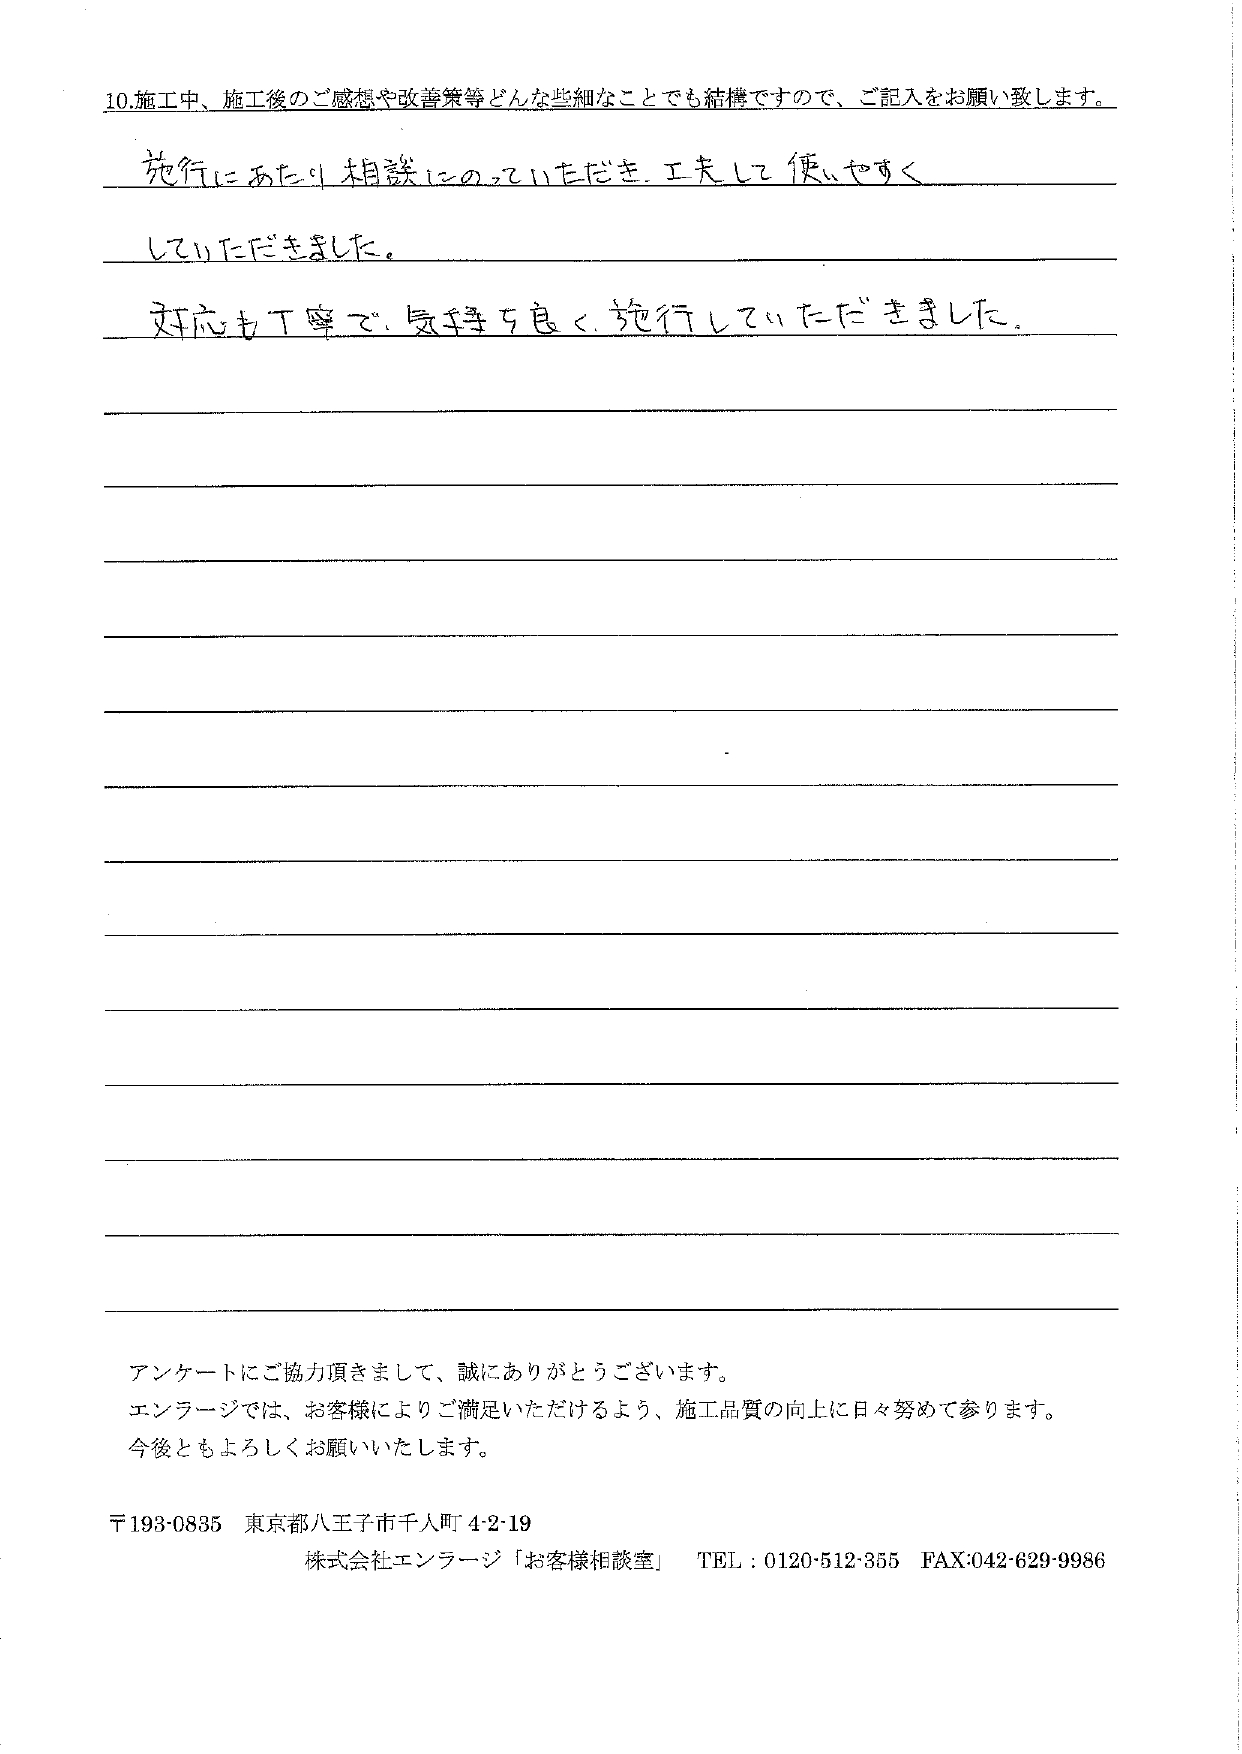 10.施工中、施工後のご感想や改善策等どんな些細なことでも結構ですので、ご記入をお願い致します。
施行にあたり相談にのっていただき、工夫して使いやすく
していただきました。
対応も丁寧で、気持ち良く、施行していただきました。
アンケートにご協力頂きまして、誠にありがとうございます。
エンラージでは、お客様によりご満足いただけるよう、施工品質の向上に日々努めて参ります。
今後ともよろしくお願いいたします。
〒193-0835 東京都八王子市千人町 4-2-19
株式会社エンラージ「お客様相談室」 TEL：0120-512-355 FAX:042-629-9986